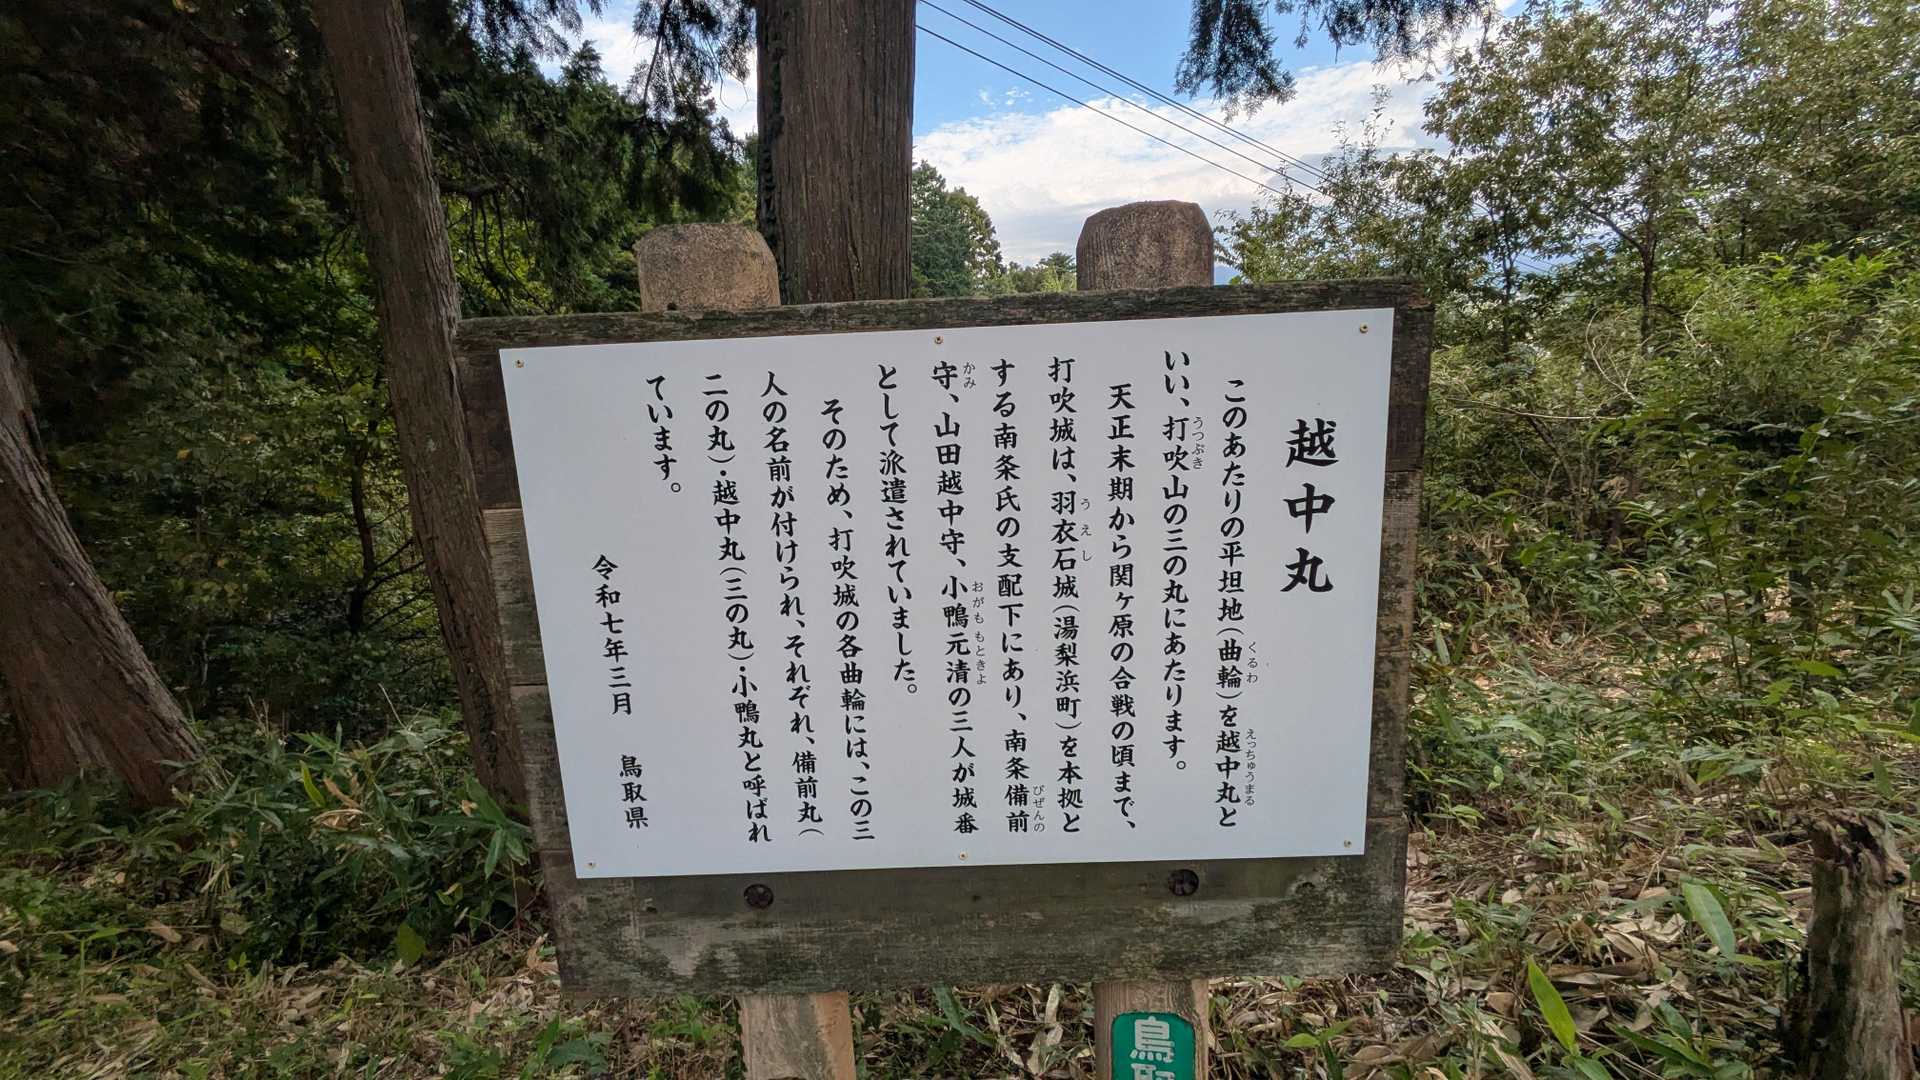 越中丸
このあたりの平坦地(曲輪)を越中丸と
くるわ
えっちゅうまる
いい、打吹山の三の丸にあたります。
うつぶき
天正末期から関ヶ原の合戦の頃まで、
打吹城は、羽衣石城(湯梨浜町)を本拠と
うえし
する南条氏の支配下にあり、南条備前
びぜんの
守、山田越中守、小鴨元清の三人が城番
かみ
おがも もときよ
として派遣されていました。
そのため、打吹城の各曲輪には、この三
人の名前が付けられ、それぞれ、備前丸(
二の丸)・越中丸(三の丸)・小鴨丸と呼ばれ
ています。
令和七年三月 鳥取県
鳥取